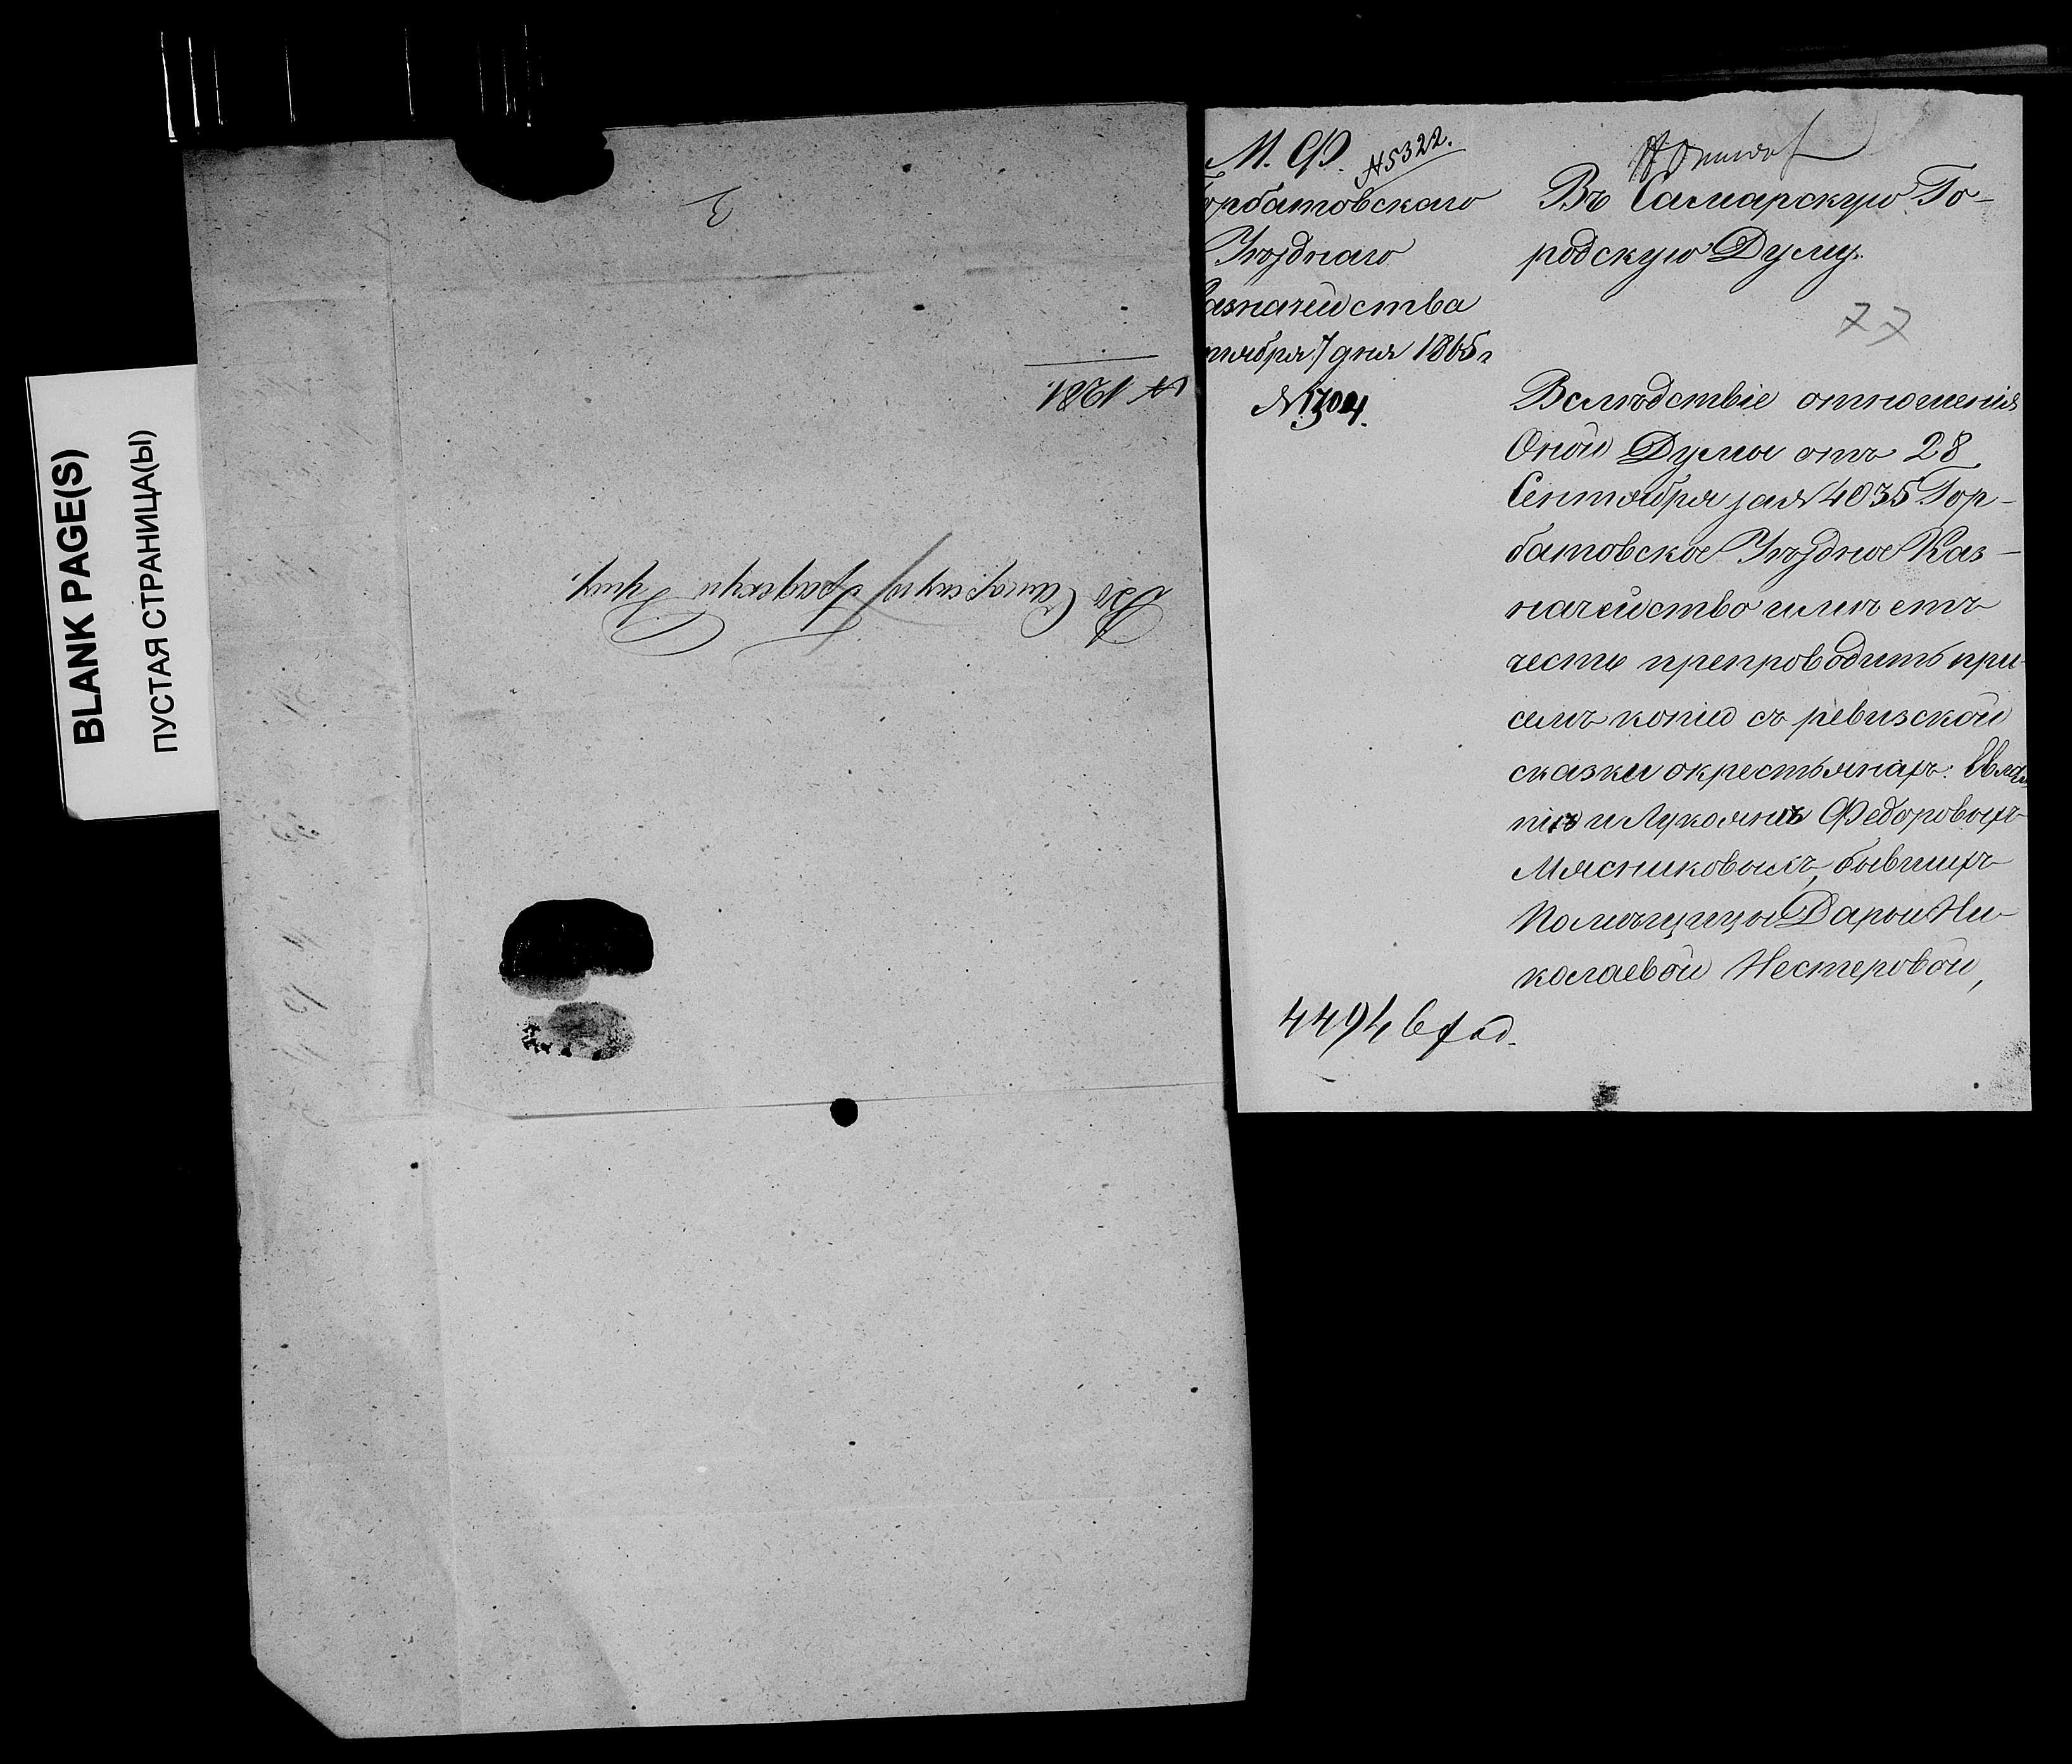 BLANK PAGE(S)
ПУСТАЯ СТРАНИЦА(Ы)
№ 1281.
Въ Самарскую Городскую Думу.
М. Ф. №5322.
Горбатовскаго
Уѣзднаго
Казначейства
тября 7 дня 1865 г
№ 1304.
Въ Самарскую Го-
родскую Думу.
77
Вслѣдствіе отношенія
Оной Думы отъ 28
Сентября за № 4035 Гор-
батовское Уѣздное Каз-
начейство имѣетъ
честь препроводить при
семъ копію съ ревизской
сказки о крестьянахъ:
и Лукоянѣ Федоровыхъ
Мясниковыхъ, бывшихъ
Помѣщицы Дарьи Ни-
колаевой Нестеровой,
4494